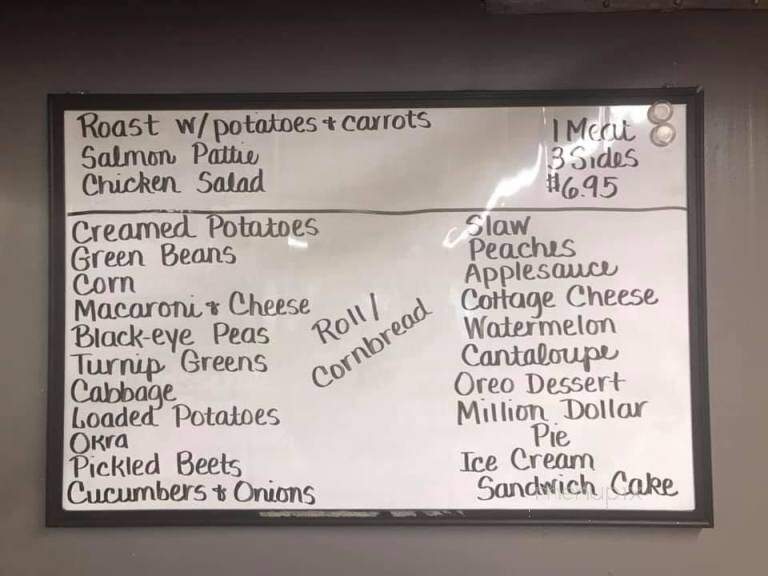 Roast w/potatoes & carrots
Salmon Pattie
Chicken Salad
1 Meat
3 Sides
$6.95
Creamed Potatoes
Green Beans
Corn
Macaroni & Cheese
Black-eye Peas
Turnip Greens
Cabbage
Loaded Potatoes
Okra
Pickled Beets
Cucumbers & Onions
Roll/
Cornbread
Slaw
Peaches
Applesauce
Cottage Cheese
Watermelon
Cantaloupe
Oreo Dessert
Million Dollar
Pie
Ice Cream
Sandwich Cake